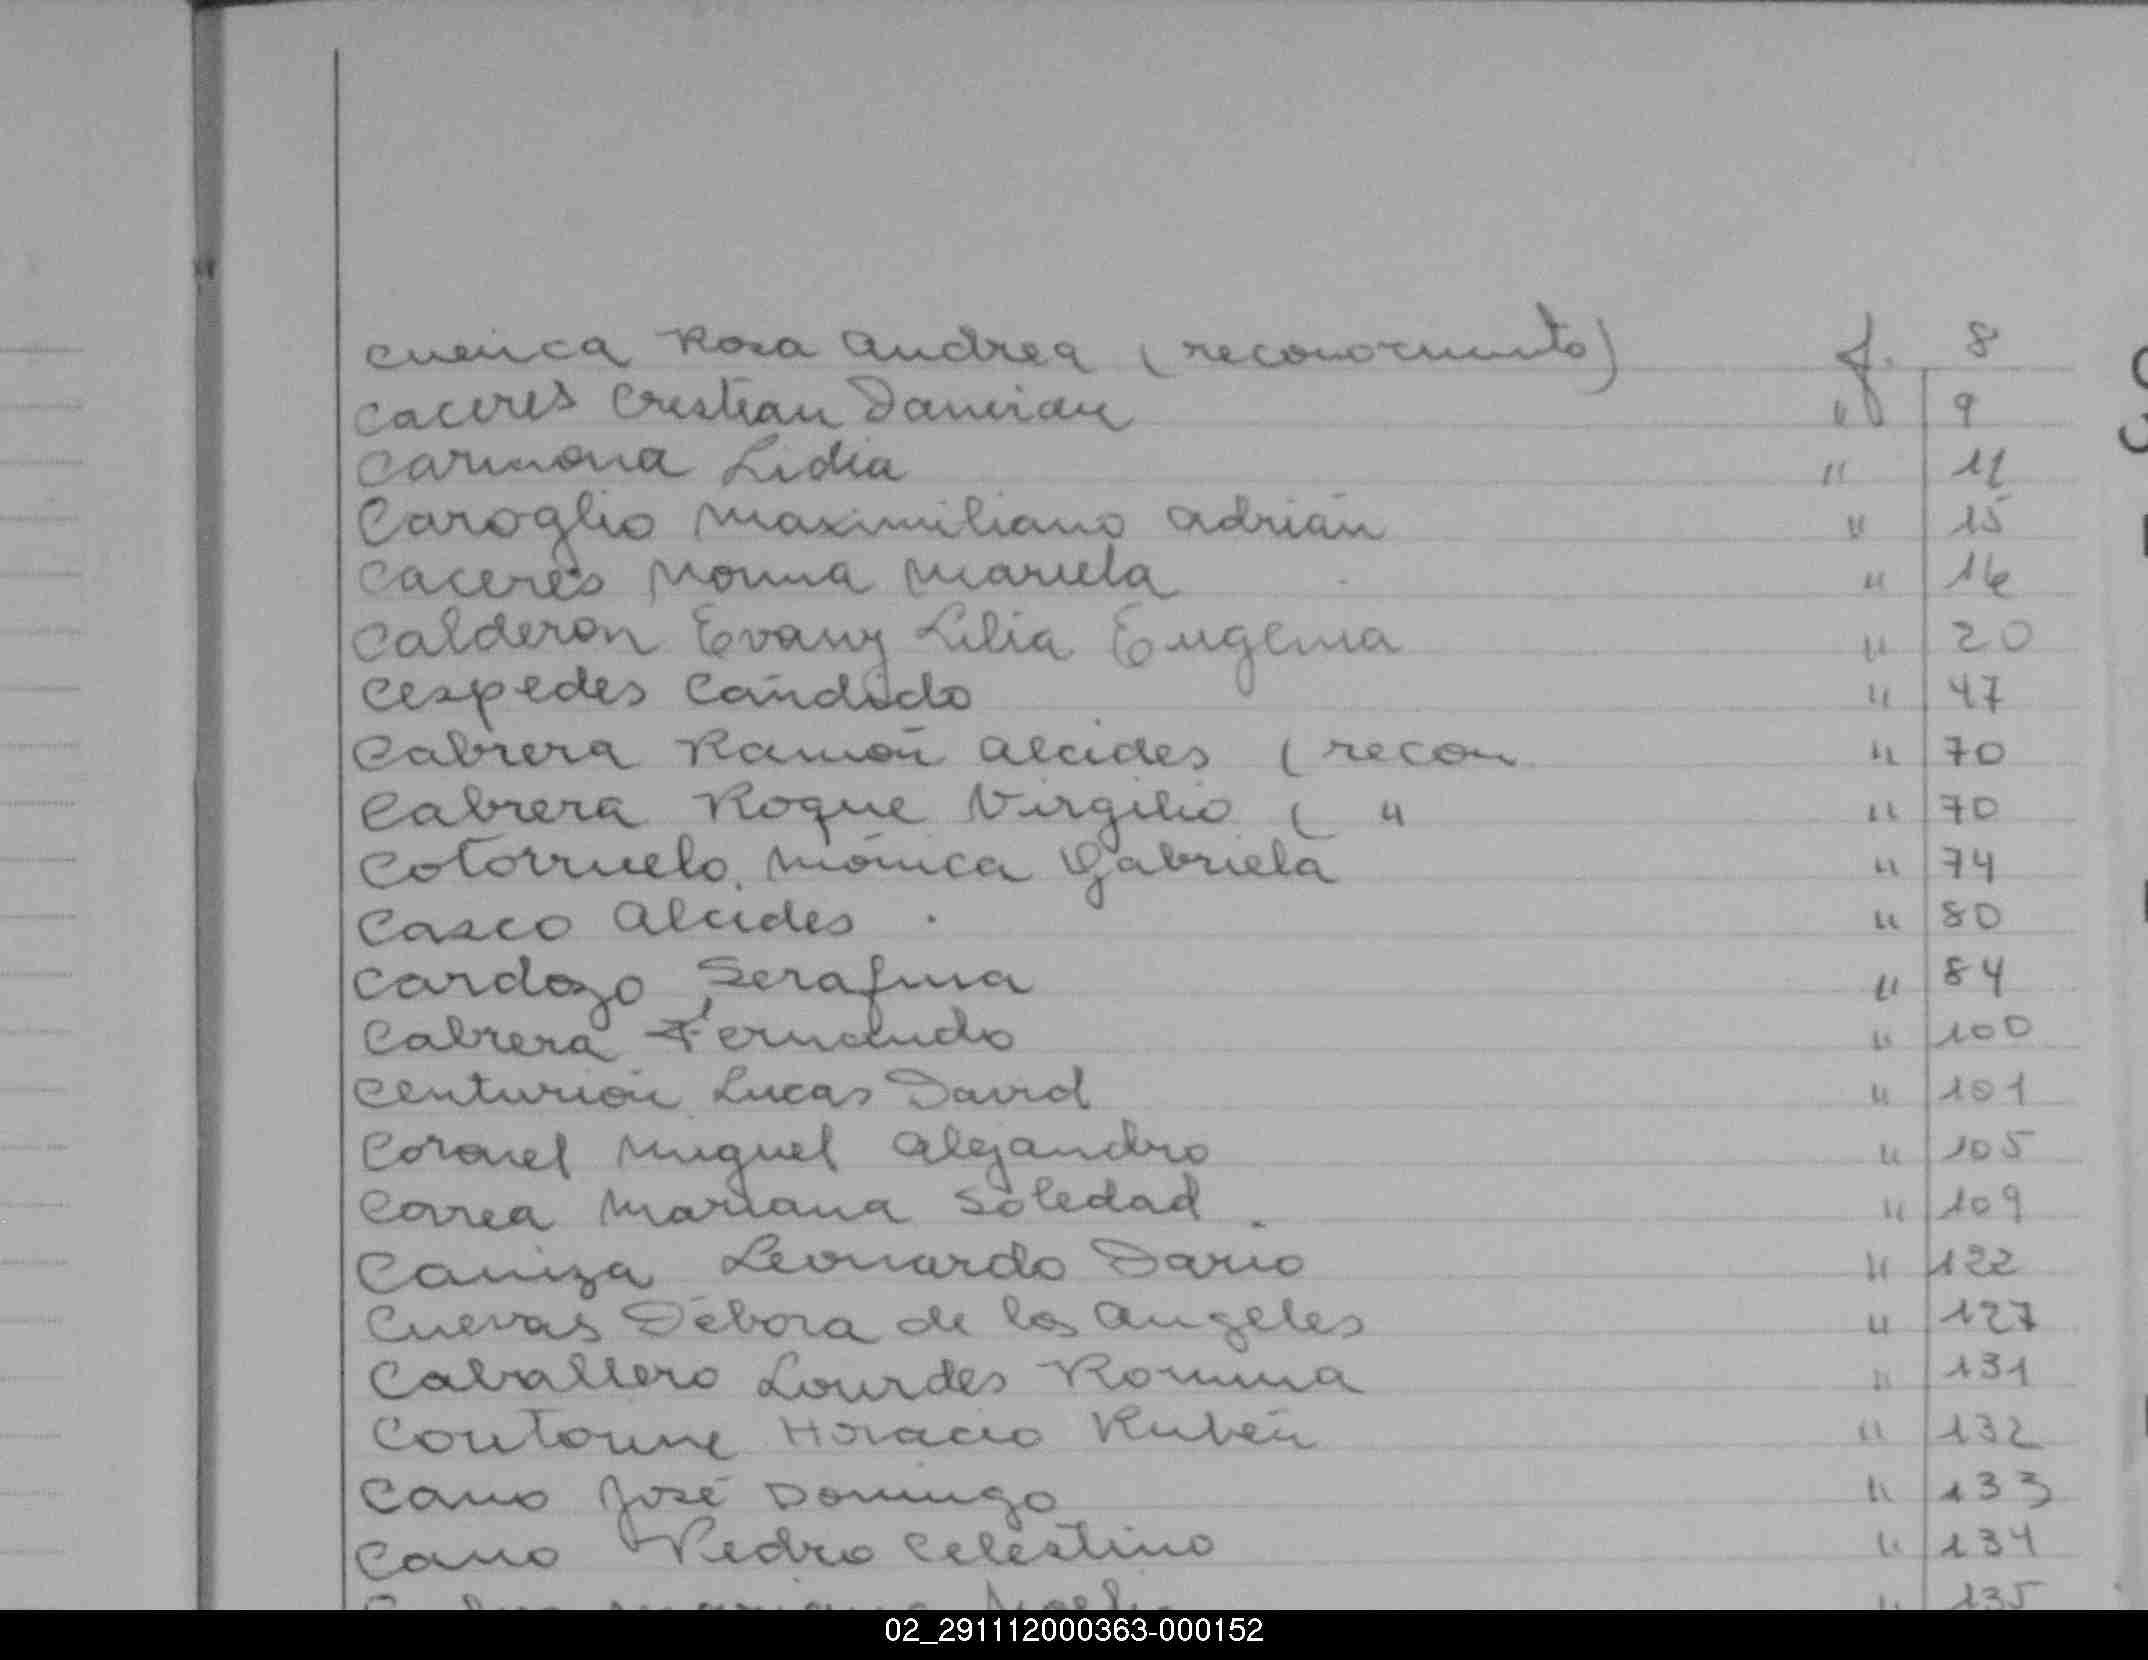 Cuenca Rosa Andrea (reconocimiento) f. 8
Caceres Cristian Damian " 9
Carmona Lidia " 11
Caroglio Maximiliano Adrián " 15
Caceres Norma Mariela " 16
Calderon Evany Lilia Eugenia " 20
Cespedes Cándido " 47
Cabrera Ramón Alcides (recon " 70
Cabrera Roque Virgilio ( " " 70
Cotorruelo, Mónica Gabriela " 74
Casco Alcides " 80
Cardozo Serafina " 84
Cabrera Fernando " 100
Centurión Lucas David " 101
Coronel Miguel Alejandro " 105
Correa Mariana Soledad " 109
Caniza Leonardo Dario " 122
Cuevas Débora de los Angeles " 127
Caballero Lourdes Romina " 131
Horacio Rubén " 132
Cano José Domingo " 133
Cano Pedro Celestino " 134
" 135
02_291112000363-000152